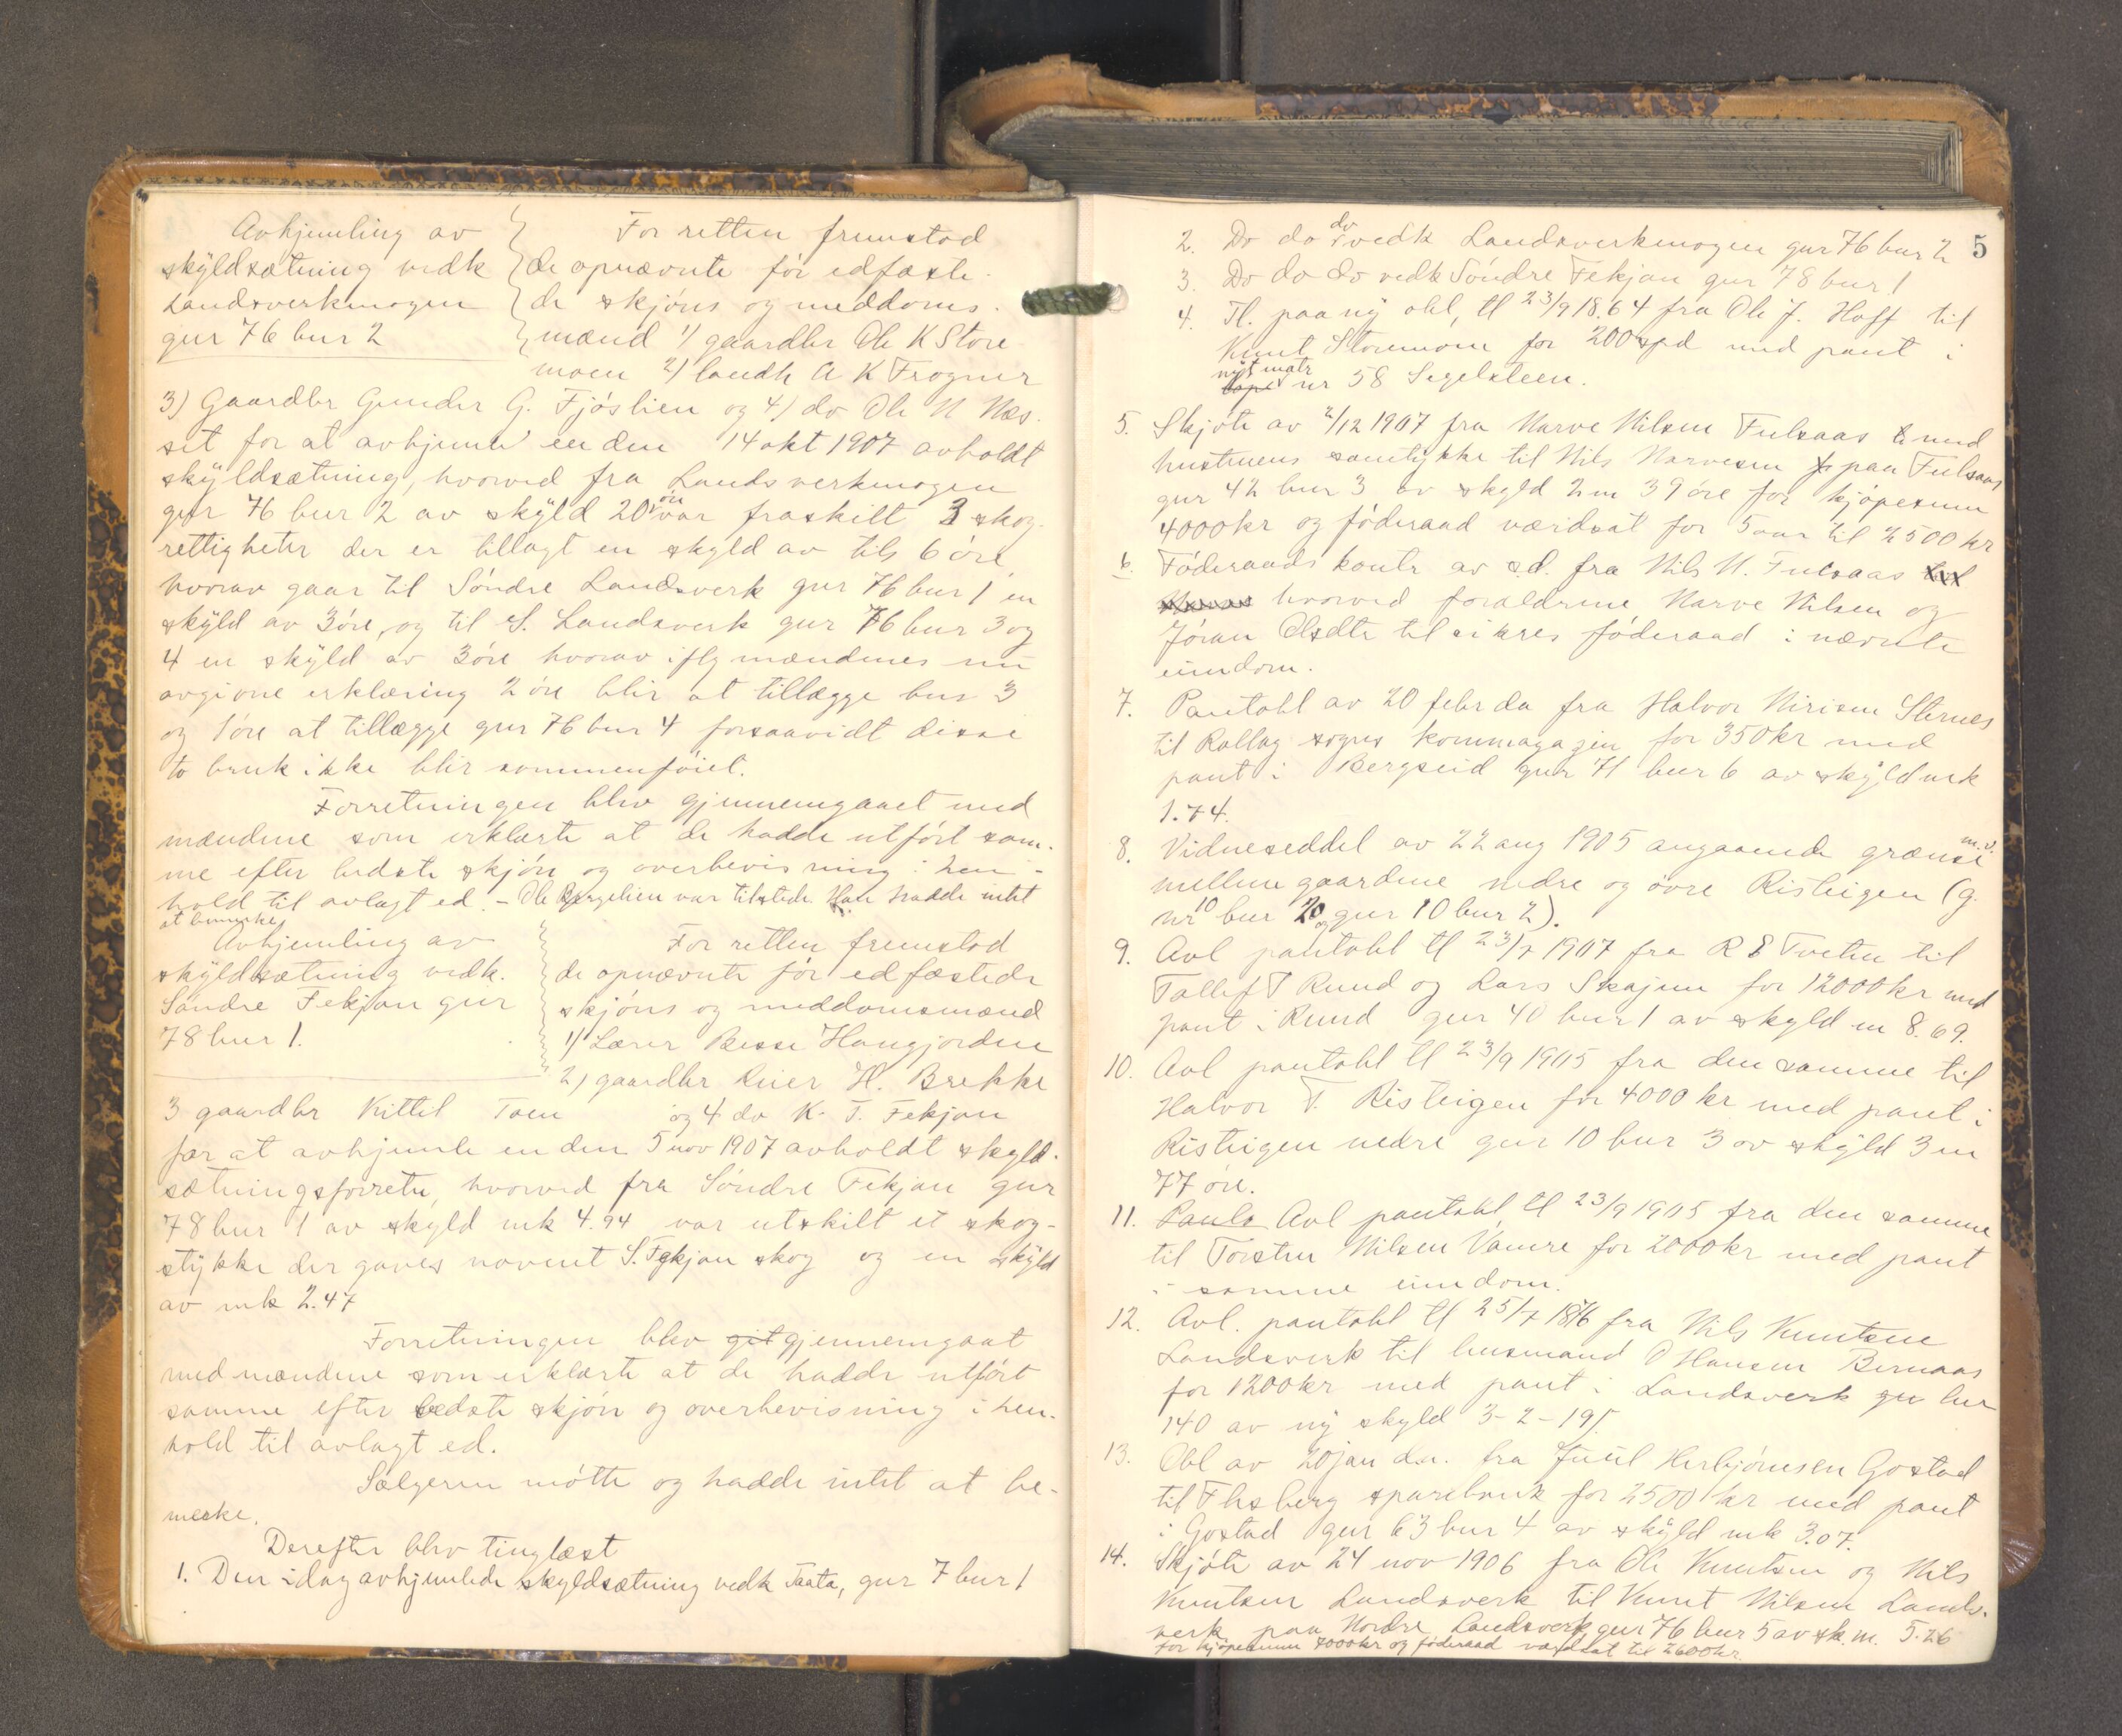 Avhjemling av
skyldsætning vedk
Landsverkmogen
gnr 76 bnr 2
For retten fremstod
de opnævnte før edfæste
de skjøns og meddoms.
mænd 1) gaardbr Ole K Store
moen 2) landh A K Frogner
3) Gaardbr Gunder G. Fjøslien og 4) do Ole N Næs.
set for at avhjemle en den 14 okt 1907 avholdt
skyldsætning, hvorved fra Landsverkmogen
gnr 76 bnr 2 av skyld 20 øre var fraskilt 3 skog-
rettigheter der er tillagt en skyld av tils 6 øre,
hvorav gaar til Søndre Landsverk gnr 76 bnr 1 en
skyld av 3 øre, og til S. Landsverk gnr 76 bnr 3 og
4 en skyld av 3 øre hvorav iflg mændenes nu
avgivne erklæring 2 øre blir at tillægge bnr 3
og 1 øre at tillægge gnr 76 bnr 4 forsaavidt disse
to bruk ikke blir sammenføiet.
Forretningen blev gjennemgaaet med
mændene som erklærte at de hadde utført sam-
me efter bedste skjøn og overbevisning i hen-
hold til avlagt ed. - Ole Bergelien var tilstede. Han hadde intet
at bemerke
Avhjemling av
skyldsætning vedk.
Søndre Fekjan gnr
78 bnr 1.
For retten fremstod
de opnævnte før edfæstede
skjøns og meddomsmænd
1) Lærer Besse Haugjordene
2) gaardbr Reier H. Brekke
3 gaardbr Kittil Toen og 4 do K. T. Fekjan
for at avhjemle en den 5 nov 1907 avholdt skyld-
sætningsforretn, hvorved fra Søndre Fekjan gnr
78 bnr 1 av skyld mk 4.94 var utskilt et skog-
stykke der gaves navnet S. Fekjan skog og en skyld
av mk 2.47
Forretningen blev git gjennemgaat
med mændene som erklærte at de hadde utført
samme efter bedste skjøn og overbevisning i hen-
hold til avlagt ed.
Sælgeren møtte og hadde intet at be-
merke.
Derefter blev tinglæst
1. Den idag avhjemlede skyldsætning vedk Taata, gnr 7 bnr 1
5
2. Do do do vedk Landsverkmogen gnr 76 bnr 2
3. Do do do vedk Søndre Fekjan gnr 78 bnr 1
4. Tl. paany obl, tl 23/9 1864 fra Ole J. Hoff til
Knut Storemoen for 200 spd med pant i
nyt matr
løpe nr 58 Segelsteen.
5. Skjøte av 2/12 1907 fra Narve Nilsen Fulsaas med
hustruens samtykke til Nils Narvesen paa Fulsaas
gnr 42 bnr 3 av skyld 2 m 39 øre for kjøpesum
4000 kr og føderaad værdsat for 5 aar til 2500 kr
6. Føderaads kontr av s.d. fra Nils N. Fulsaas
hvorved forældrene Narve Nilsen og
Jøran Olsdtr tilsikres føderaad i nævnte
eiendom.
7. Pantobl av 20 febr da fra Halvor Nirisen Sternes
til Rollag sogns kornmagazin for 350 kr med
pant i Bergseid gnr 71 bnr 6 av skyld mk
1.74.
8. Vidneseddel av 22 aug 1905 angaaende grænse m.v.
mellem gaardene nedre og øvre Risteigen (g.
nr 10 bnr 20 og gnr 10 bnr 2).
9. Avl pantobl tl 23/7 1907 fra R E Tveten til
Tollef T Ruud og Lars Skajem for 12000 kr med
pant i Ruud gnr 40 bnr 1 av skyld m 8.69.
10. Avl pantobl tl 23/9 1905 fra den samme til
Halvor T. Risteigen for 4000 kr med pant i
Risteigen nedre gnr 10 bnr 3 av skyld 3 m
77 øre.
11. Avl pantobl tl 23/9 1905 fra den samme
til Torsten Nilsen Vamre for 2000 kr med pant
i samme eiendom.
12. Avl. pantobl tl 25/7 1876 fra Nils Knutsen
Landsverk til husmand O Hansen Bernaas
for 1200 kr med pant i Landsverk lnr
140 av ny skyld 3-2-19.
13. Obl av 20 jan da. fra Juul Herbjørnsen Gostad
til Flesberg sparebank for 2500 kr med pant
i Gostad gnr 63 bnr 4 av skyld mk 3.07.
14. Skjøte av 24 nov 1906 fra Ole Knutsen og Nils
Knutsen Landsverk til Knut Nilsen Lands-
verk paa Nordre Landsverk gnr 76 bnr 5 av sk. m. 5.26
for kjøpesum 7000 kr og føderaad værdsat til 2600 kr.